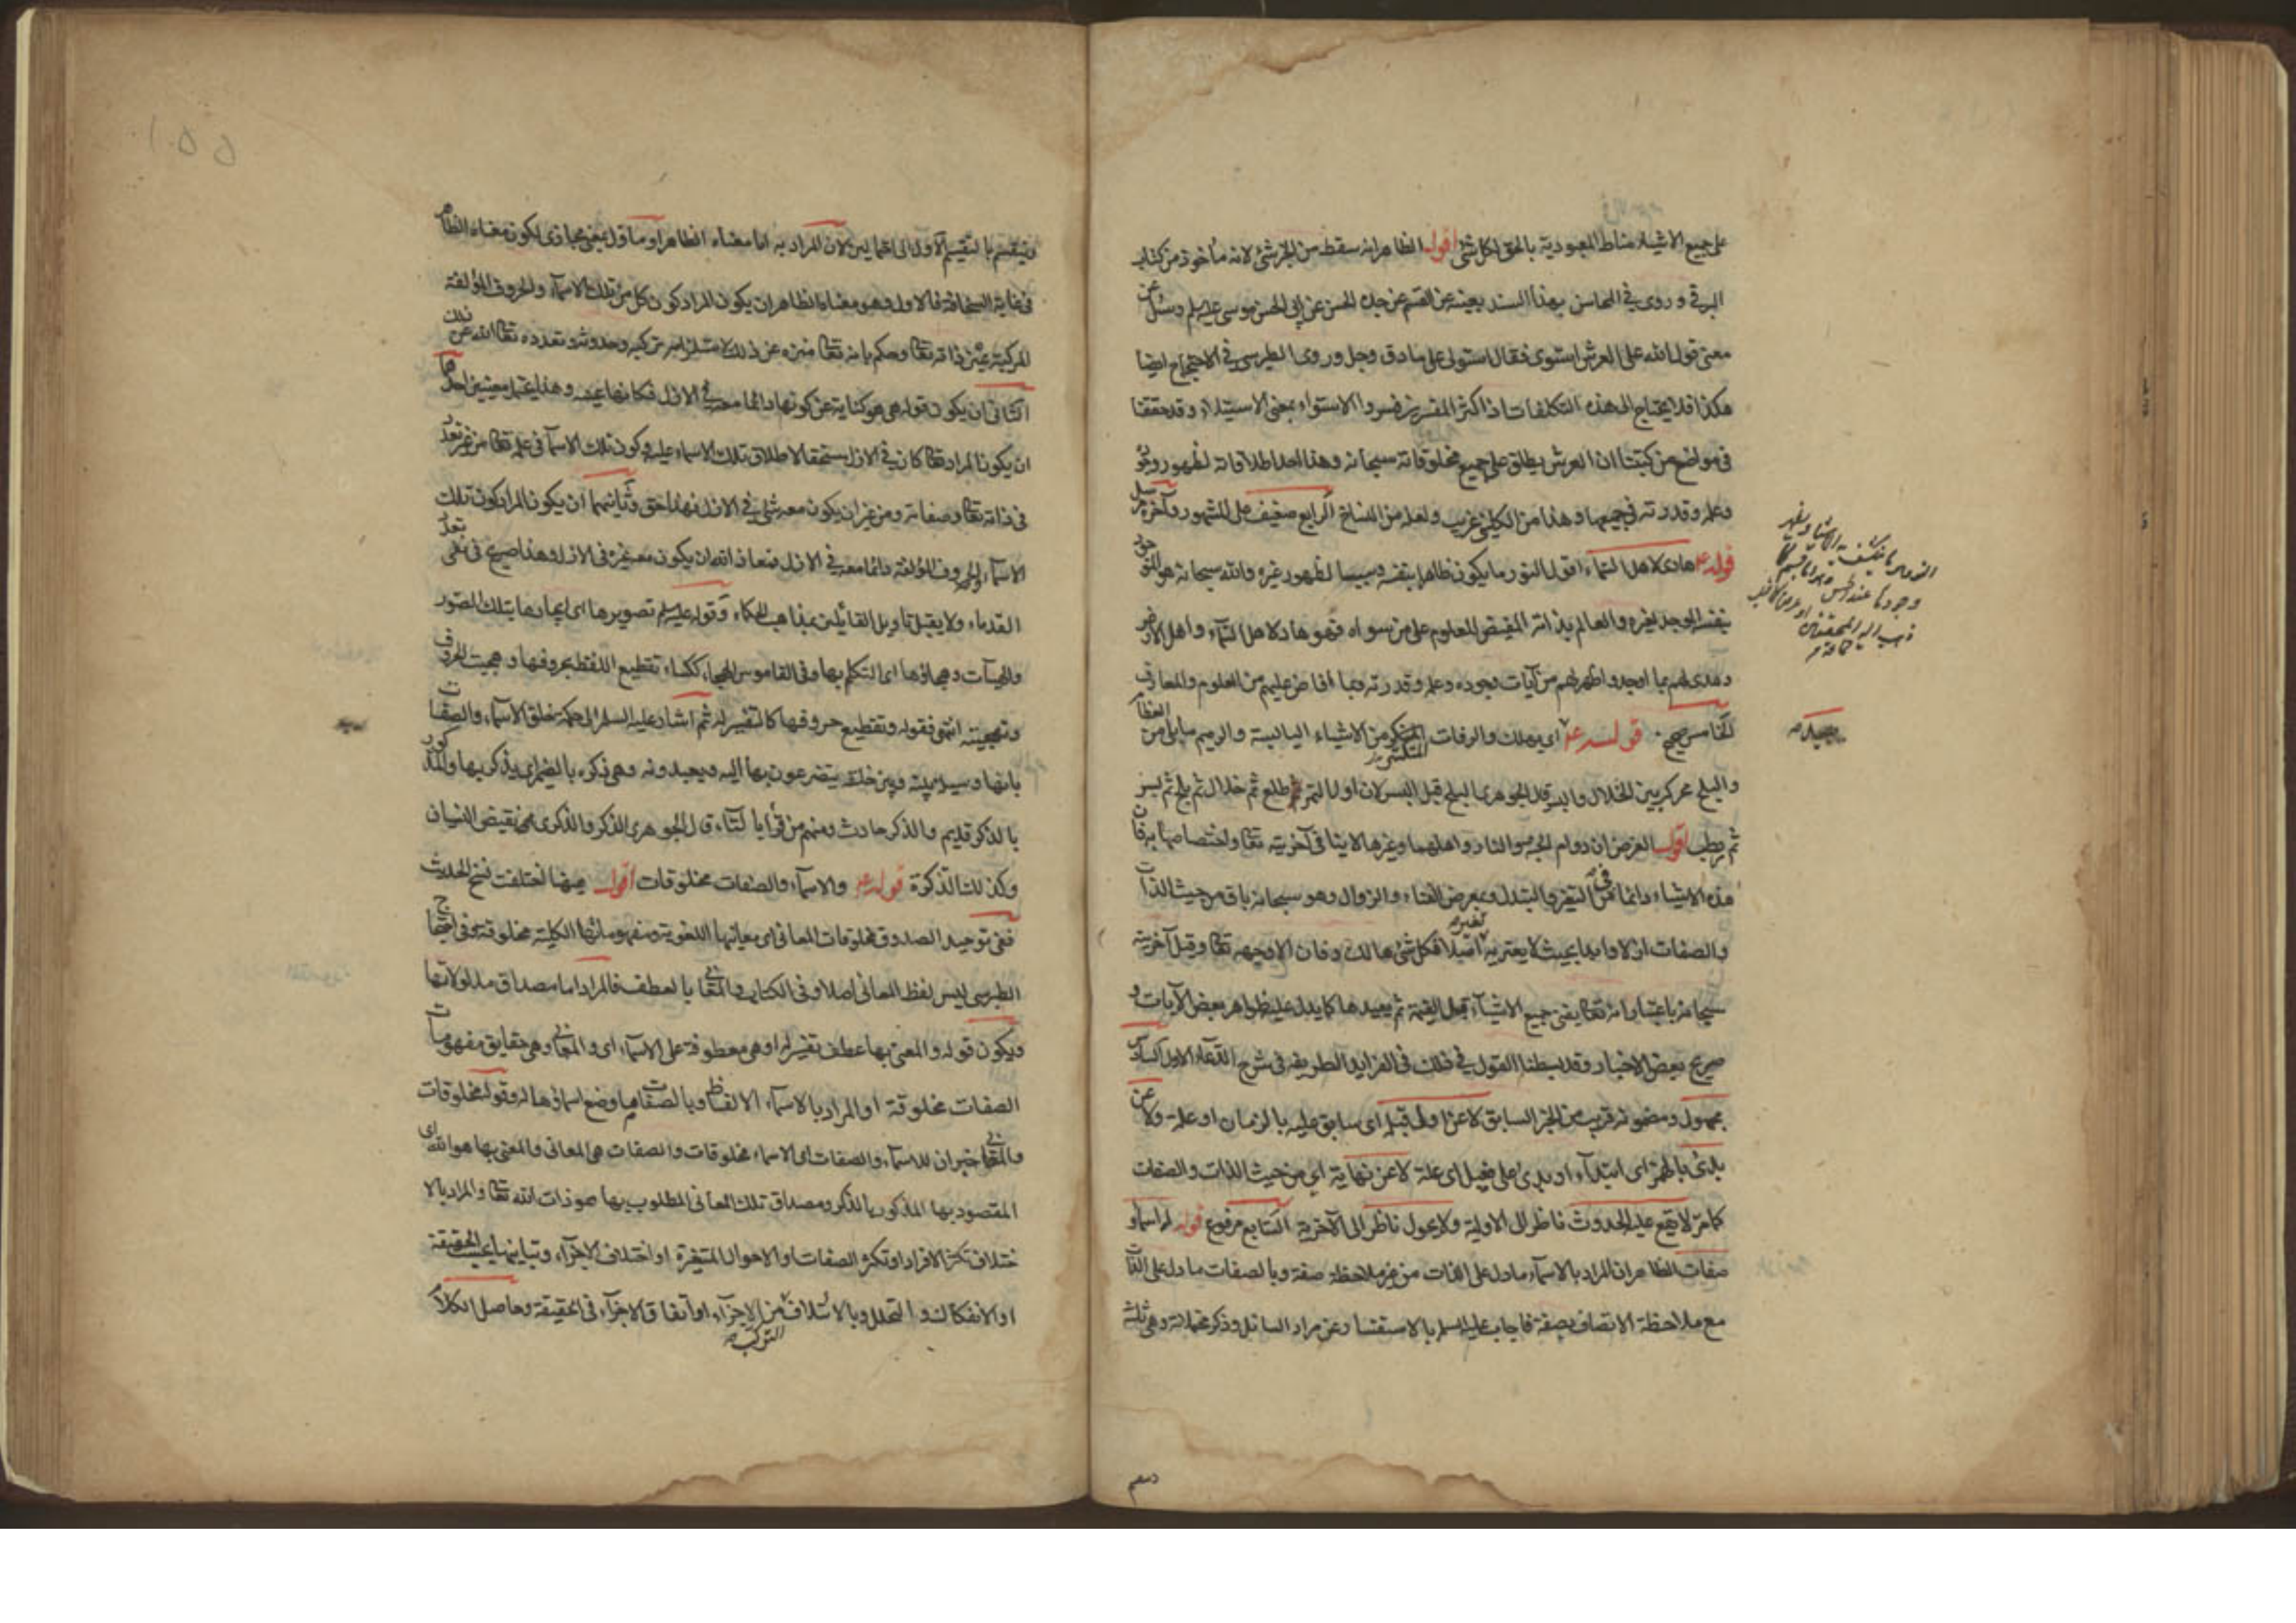 على جميع الاشياء مناط المعبودية بالحق لكل شئ اقول الظاهر انه سقط من الخبر شئ لانه مأخوذ من كتاب
البرقي وروى في المحاسن بهذا السند بعينه عن القسم عن جده الحسن عن ابي الحسن موسى عليه السلم وسئل عن
معنى قول الله على العرش استوى فقال استولى على ما دق وجل وروى الطبرسي في الاحتجاج ايضا
هكذا فلا يحتاج الى هذه التكلفات اذ اكثر المفسرين فسروا الاستواء بمعنى الاستيلاء وقد حققنا
في مواضع من كتبنا ان العرش يطلق على جميع مخلوقاته سبحانه وهذا احد اطلاقاته لظهور وجوده
وعلمه وقدرته في جميعها وهذا من الكليني غريب ولعله من النساخ الرابع ضعيف على المشهور وآخره مرسل
قوله ع هادى لاهل السماء اقول النور ما يكون ظاهرا بنفسه وسببا لظهور غيره والله سبحانه هو الموجود
بنفسه الموجد لغيره والعالم بذاته المفيض للعلوم على من سواه فهو هاد لاهل السماء واهل الارض
وهدى لهم بما اوجد واظهر لهم من آيات وجوده وعلمه وقدرته وبما افاض عليهم من العلوم والمعارف
الخامس صحيح قوله ع اى يهلك والرفات المتكسر من الاشياء اليابسة والرميم ما بلى من العظام
والبلح محركة بين الخلال والبسر قال الجوهرى البلح قبل البسر لان اول التمر طلع ثم خلال ثم بلح ثم بسر
ثم رطب اقول الغرض ان دوام الجنة والنار واهلهما وغيرها لا ينافى آخريته تعا واختصاصها به فان
هذه الاشياء دائما في التغير والتبدل وبمعرض الفناء والزوال وهو سبحانه باق من حيث الذات
والصفات ازلا وابدا بحيث لا يعتريه تغير ابدا فكل شئ هالك وفان الا وجهه تعا وقيل آخريته
سبحانه باعتبار انه تعا يفنى جميع الاشياء قبل القيمة ثم يعيدها كما يدل عليه ظواهر بعض الآيات و
صريح بعض الاخبار وقد بسطنا القول في ذلك في الفرايد الطريفه في شرح الدعاء الاول السادس
مجهول ومضمونه قريب من الخبر السابق لا عن اول قبله اى سابق عليه بالزمان او علة ولا عن
بدئ بالهمز اى ابتداء او بدئ على فعيل اى علة لا عن نهاية اى من حيث الذات والصفات
كما مر لا يقع عليه الحدوث ناظر الى الاولية ولا يحول ناظر الى الآخرية السابع مرفوع قوله له اسماء و
صفات الظاهر ان المراد بالاسماء ما دل على الذات من غير ملاحظة صفة وبالصفات ما دل على الذات
مع ملاحظة الاتصاف بصفة فاجاب عليه السلم بالاستفسار عن مراد السائل وذكر محتملاته وهى ثلثة
وينقسم بالتقسيم الاول الى احتمالين لان المراد به اما معناه الظاهر او مأول بمعنى مجازى لكون معناه الظاهر
في غاية السخافة فالاول وهو معناه الظاهر ان يكون المراد كون كل من تلك الاسماء والحروف المؤلفة
المركبة عين ذاته تعا وحكم بانه تعا منزه عن ذلك لاستلزامه تركبه وحدوثه وتعدده تعا الله عن ذلك
الثانى ان يكون قوله هى هو كناية عن كونها دائما معه في الازل فكانها عينه وهذا يحتمل معنيين احدهما
ان يكون المراد تعا كان في الازل مستحقا لاطلاق تلك الاسماء عليه وكون تلك الاسماء فى علمه تعا من غير تعدد
فى ذاته تعا وصفاته ومن غير ان يكون معه شئ في الازل فهذا حق وثانيهما ان يكون المراد كون تلك
الاسماء والحروف المؤلفة دائما معه في الازل فمعاذ الله ان يكون معه غيره فى الازل وهذا صريح فى نفى تعدد
القدماء ولا يقبل تأويل القائلين بمذاهب الحكماء وقوله عليه السلم تصويرها اى ايجادها بتلك الصور
والهيآت وهجاؤها اى التكلم بها وفى القاموس الهجاء ككساء تقطيع اللفظ بحروفها وهجيت الحروف
وتهجيته انتهى فقوله وتقطيع حروفها كالتفسير له ثم اشار عليه السلم الى حكمة خلق الاسماء والصفات
بانها وسيلة بينه وبين خلقه يتضرعون بها اليه ويعبدونه وهى ذكره بالضمير اى يذكر بها والمذكور
بالذكر قديم والذكر حادث ومنهم من قرأ بالتاء قال الجوهرى الذكر والذكرى نقيض النسيان
وكذلك الذكرة قوله ع والاسماء والصفات مخلوقات اقول ههنا اختلفت نسخ الحديث
ففى توحيد الصدوق مخلوقات المعانى اى معانيها اللغوية ومفهوماتها الكلية مخلوقة وفى احتجاج
الطبرسى ليس لفظ المعانى اصلا وفى الكتاب والمعانى بالعطف فالمراد اما مصداق مدلولاتها
ويكون قوله والمعنى بها عطف تفسير له او هى معطوفة على الاسماء اى والمعانى وهى حقايق مفهومات
الصفات مخلوقة او المراد بالاسماء الالفاظ وبالصفات ما وضع اسماؤها له وقوله مخلوقات
والمعانى خبران للاسماء والصفات اى الاسماء مخلوقات والصفات هى المعانى والمعنى بها هو الله اى
المقصود بها المذكور بالذكر ومصداق تلك المعانى المطلوب بها هو ذات الله تعا والمراد بالا
ختلاف تكثر الافراد او تكثر الصفات والاحوال المتغيرة او اختلاف الاجزاء وتباينها بحسب الحقيقة
او الانفكاك والتحلل وبالائتلاف التركب من الاجزاء او اتفاق الاجزاء فى الحقيقة وحاصل الكلام